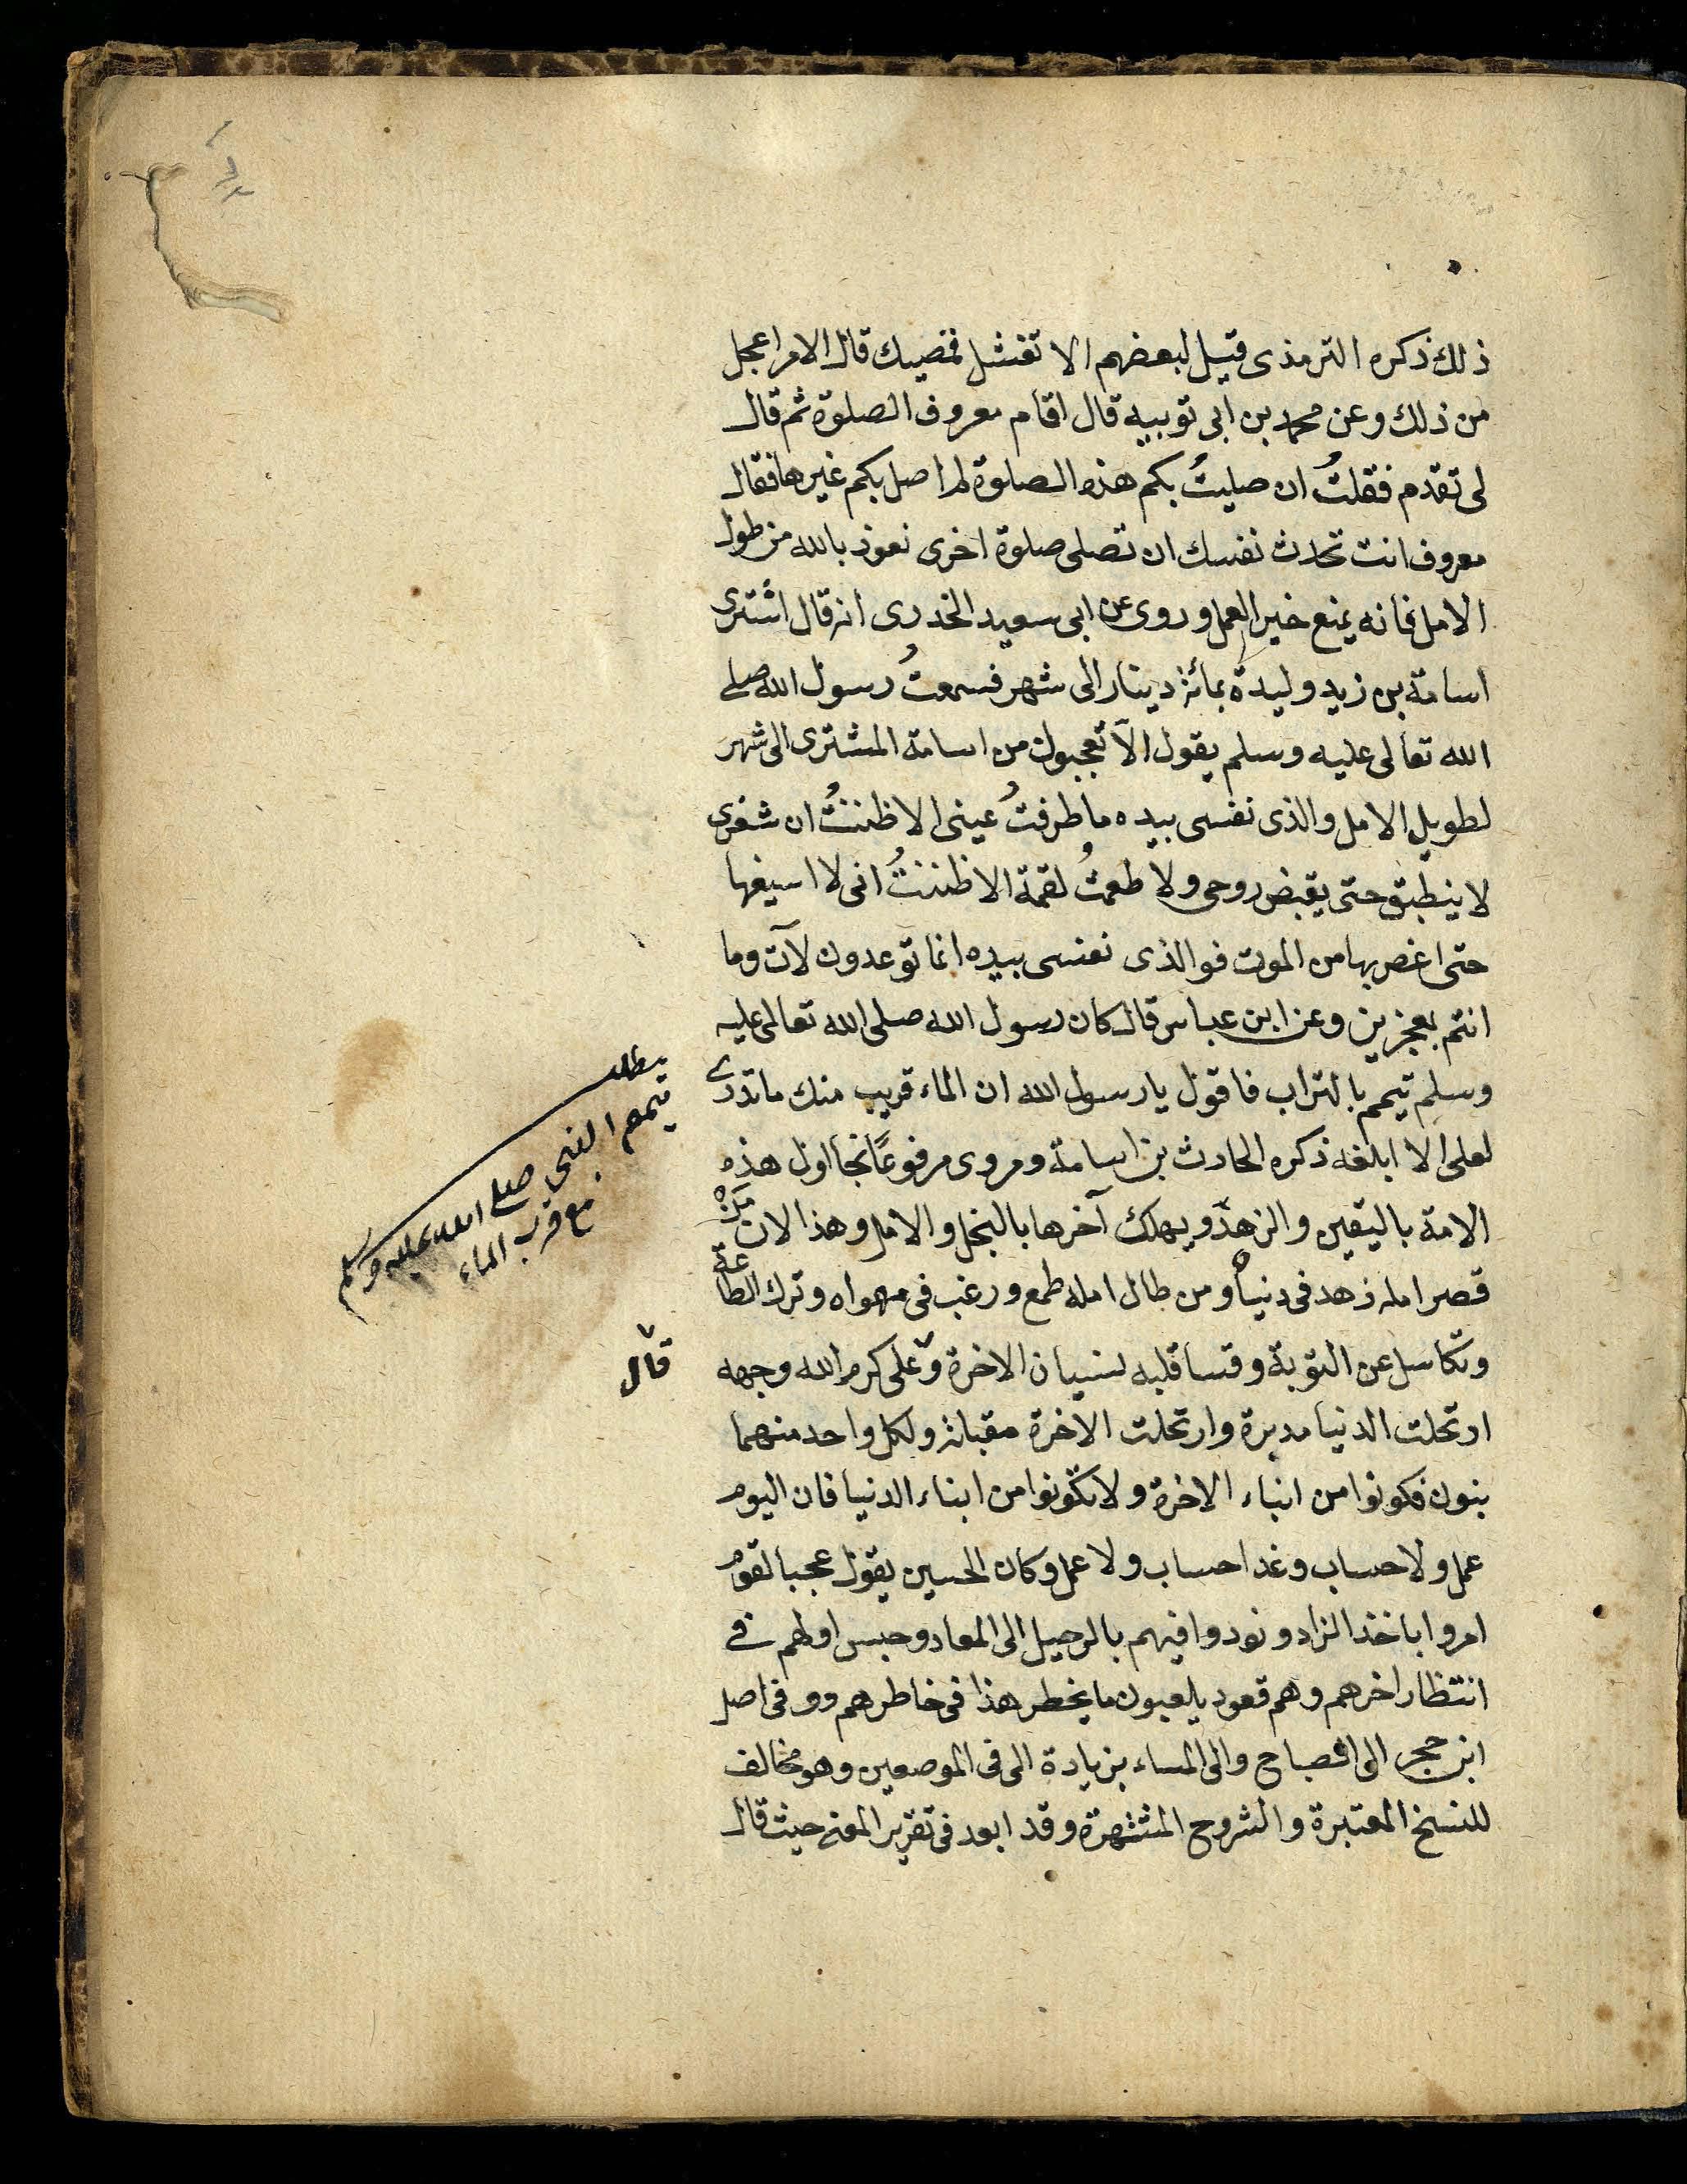 ذلك ذكره الترمذى قيل لبعضهم الا تغسل قميصك قال الامر اعجل
من ذلك وعن محمد بن ابى توبيه قال اقام معروف الصلوة ثم قال
لى تقدم فقلتُ ان صليتُ بكم هذه الصلوة لم اصل بكم غيرها فقال
معروف انت تحدث نفسك ان تصلى صلوة اخرى نعوذ بالله من طول
الامل فانه يمنع خير العمل وروى عن ابى سعيد الخدرى انه قال اشترى
اسامة بن زيد وليدة بمائة دينار الى شهر فسمعتُ رسول الله صلى
الله تعالى عليه وسلم يقول الا تعجبون من اسامة المشترى الى شهر
لطويل الامل والذى نفسى بيده ما طرفتُ عينى الا ظننتُ ان شفرى
لا ينطبق حتى يقبض روحى ولا طعمتُ لقمة الا ظننتُ انى لا اسيغها
حتى اغص بها من الموت فوالذى نفسى بيده انما توعدون لآت وما
انتم بمعجزين وعن ابن عباس قال كان رسول الله صلى الله تعالى عليه
وسلم تيمم بالتراب فاقول يا رسول الله ان الماء قريب منك ما تدرى
لعلى لا ابلغه ذكره الحارث بن اسامة ومروى مرفوعًا نجا اول هذه
الامة باليقين والزهد ويهلك آخرها بالبخل والامل وهذا لان من
قصر امله زهد فى دنياه ومن طال امله طمع ورغب فى مهواه وترك الطاعة
وتكاسل عن التوبة وقسا قلبه لنسيان الاخرة وعلى كرم الله وجهه
ارتحلت الدنيا مدبرة وارتحلت الاخرة مقبلة ولكل واحد منهما
بنون فكونوا من ابناء الاخرة ولا تكونوا من ابناء الدنيا فان اليوم
عمل ولا حساب وغدا حساب ولا عمل وكان الحسين يقول عجبا لقوم
امروا باخذ الزاد ونودوا فيهم بالرحيل الى المعاد وحبس اولهم فى
انتظار اخرهم وهم قعود يلعبون ما يخطر هذا فى خاطرهم ووفى اصل
ابن حجر الى الصباح والى المساء بزيادة الى فى الموضعين وهو مخالف
للنسخ المعتبرة والشروح المشتهرة وقد ابعد فى تقرير المعنى حيث قال
مطلب
تيمم النبى صلى الله عليه وسلم
مع قرب الماء
قال